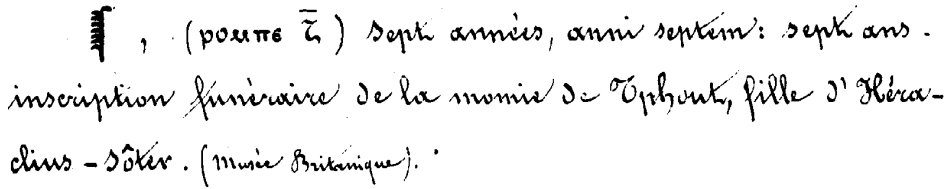 , (ⲣⲟⲙⲡⲉ ⲍ̄) sept années, anni septem: sept ans.
inscription funéraire de la momie de Tphout, fille d'Héra-
clius-Sôter. (Musée Britanique).